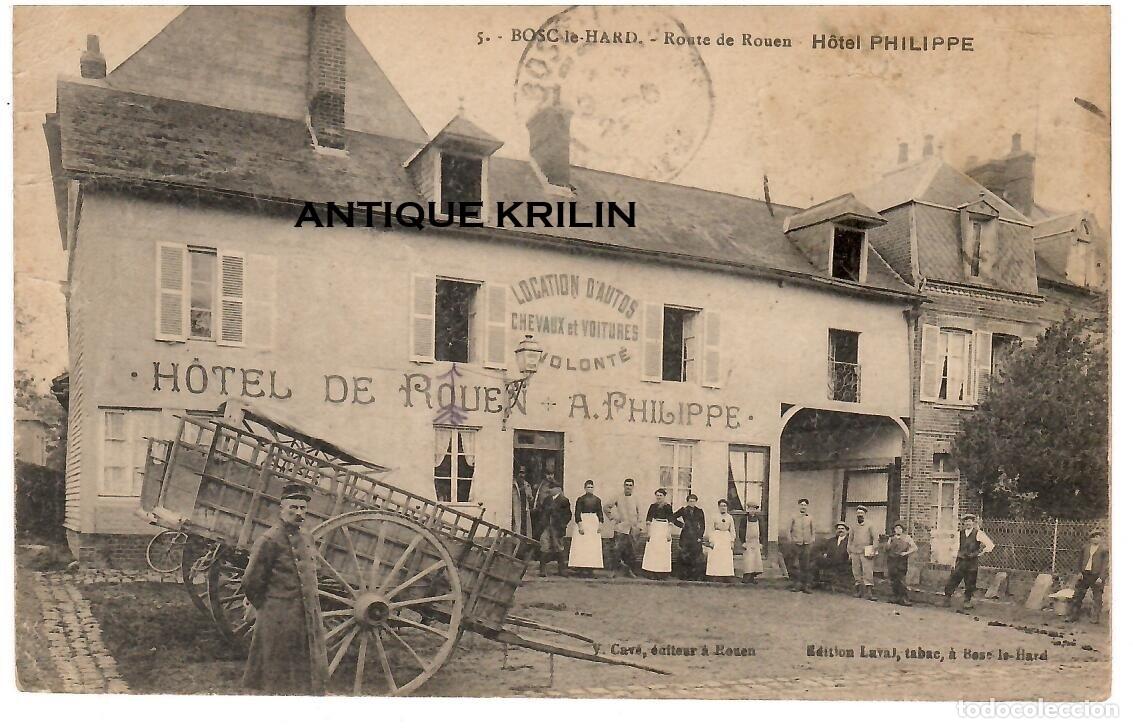 5. - BOSC-le-HARD. - Route de Rouen - Hôtel PHILIPPE
ANTIQUE KRILIN
LOCATION D'AUTOS
CHEVAUX et VOITURES
VOLONTÉ
HÔTEL DE ROUEN + A. PHILIPPE
V. Cavé, éditeur à Rouen
Edition Laval, tabac, à Bosc-le-Hard
todocoleccion